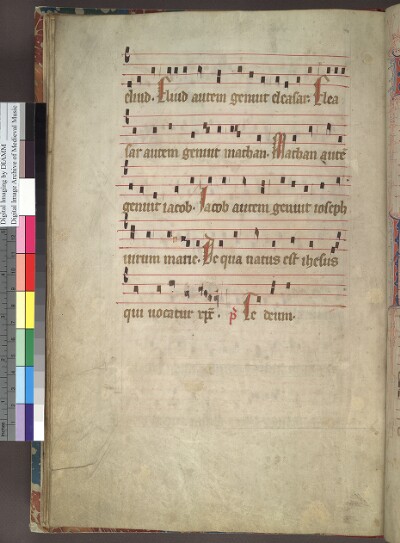 eliud. Eliud autem genuit eleasar. Elea
sar autem genuit mathan. Mathan autē
genuit iacob. Iacob autem genuit ioseph
uirum marie. De qua natus est ihesus
qui uocatur xp̄c. p̄ Te deum.
Digital Imaging by DIAMM
Digital Image Archive of Medieval Music